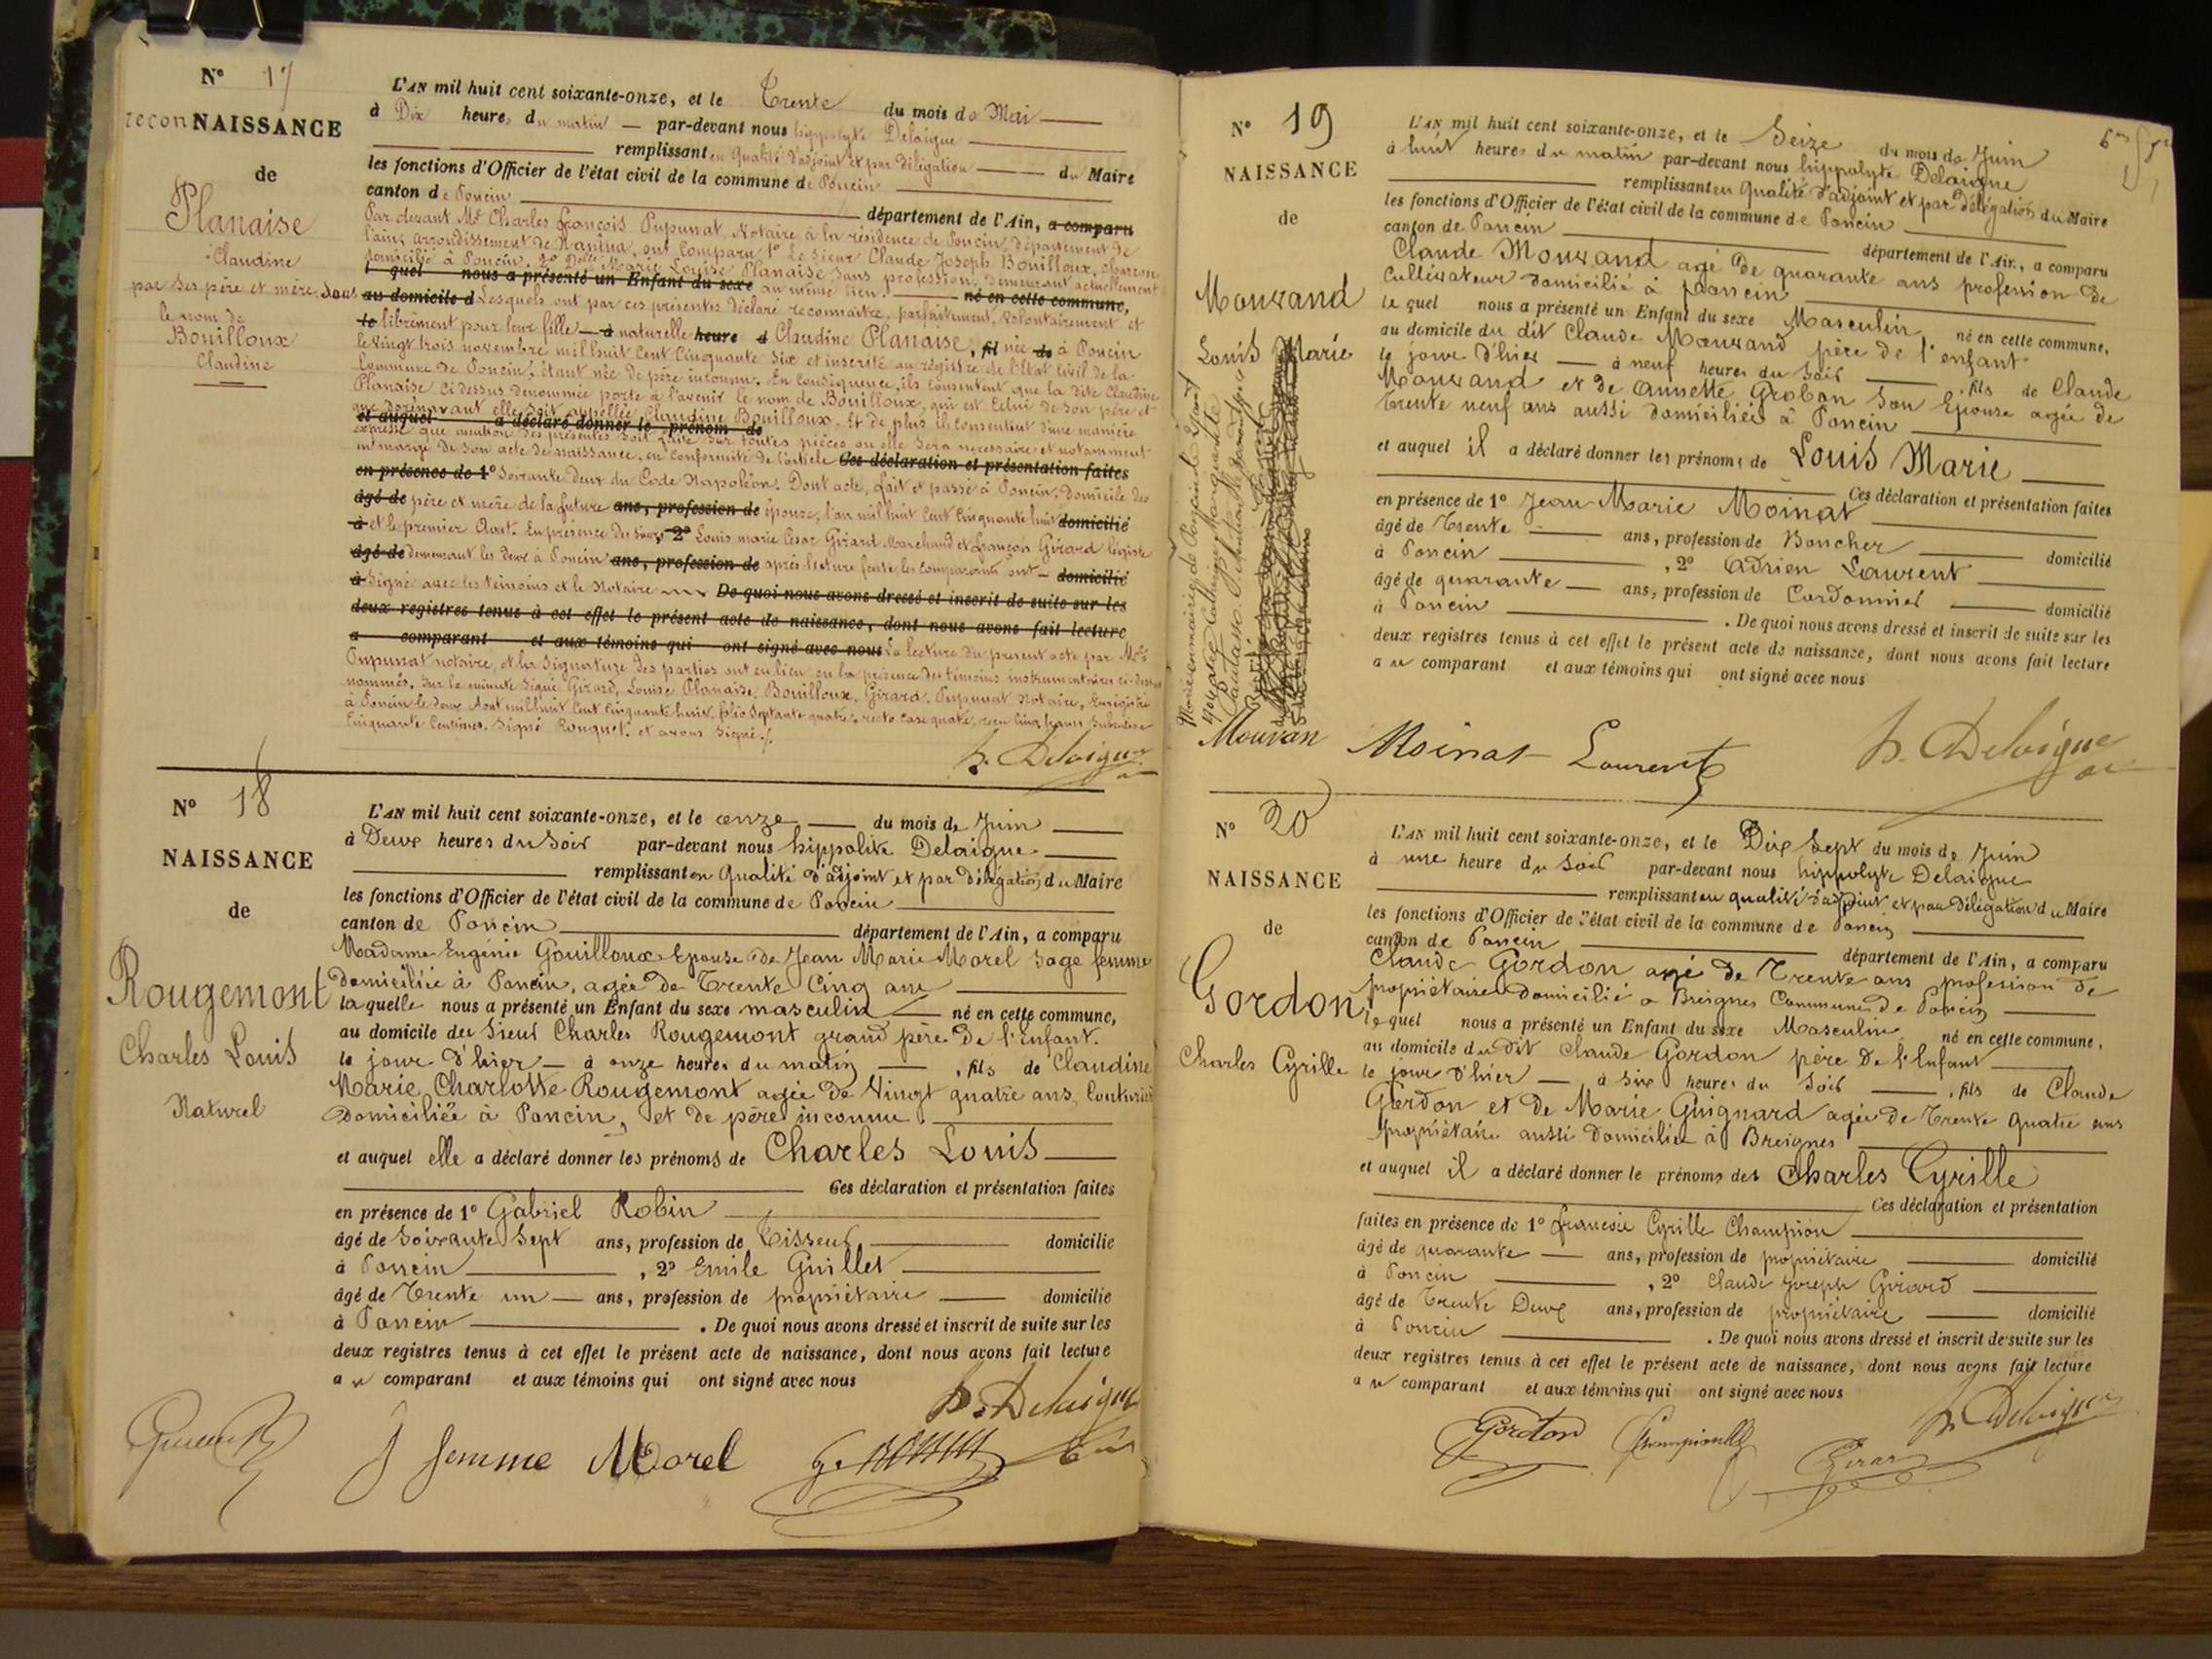 N° 17
reconNAISSANCE
de
Planaise
Claudine
par ses père et mère, sous
le nom de
Bouilloux
Claudine
L'AN mil huit cent soixante-onze, et le Trente du mois de Mai
à Dix heures du matin par-devant nous hippolyte Delaigue
remplissant en Qualité d'adjoint et par délégation du Maire
les fonctions d'Officier de l'état civil de la commune de Poncin
canton de Poncin département de l'Ain, a comparu
Par devant Me Charles françois Pupunat, Notaire à la résidence de Poncin, département de
l'ain, arrondissement de Nantua, ont Comparu 1° Le Sieur Claude Joseph Bouilloux, charron
domicilié à Poncin. 2° Delle Marie Louise Planaise sans profession, demeurant actuellement
l quel nous a présenté un Enfant du sexe au même lieu. né en cette commune,
au domicile d Lesquels ont par ces présentes déclaré reconnaitre, parfaitement, volontairement et
le librement pour leur fille à naturelle heure d Claudine Planaise, fil née de à Poncin
le vingt trois novembre mil huit Cent Cinquante Six et inscrite au régistre de l'Etat Civil de la
Commune de Poncin, étant née de père inconnu. En Conséquence, ils Consentent que la dite Claudine
Planaise Ci dessus dénommée porte à l'avenir le nom de Bouilloux, qui est Celui de son père et
que dorénavant elle soit appellée Claudine Bouilloux. Et de plus ils consentent d'une manière
et auquel a déclaré donner le prénom de
expresse que mention des présentes soit faite sur toutes pièces ou elle sera nécessaire et notamment
en marge de son acte de naissance, en Conformité de l'article Ces déclaration et présentation faites
en présence de 1° Soixante Deux du Code Napoléon. Dont acte, fait et passé à Poncin, Domicile des
âgé de père et mère de la future ans, profession de épouse, l'an mil huit Cent Cinquante huit domicilié
à et le premier Aout. En présence des Sieurs 2° Louis marie Cesar Girard Marchand et françois Girard légiste
âgé de demeurant les deux à Poncin ans, profession de après lecture faite, les comparants ont domicilié
à Signé avec les témoins et le Notaire De quoi nous avons dressé et inscrit de suite sur les
deux registres tenus à cet effet le présent acte de naissance, dont nous avons fait lecture
a comparant et aux témoins qui ont signé avec nous La lecture du présent acte par Me
Pupunat notaire, et les Signature des parties ont eu lieu en la présence des témoins instrumentaires ci-dessus
nommés. Sur la minute Signé Girard, Louise Planaise, Bouilloux, Girard, Pupunat Notaire, Enrégistré
à Poncin le deux Aout mil huit Cent Cinquante huit, folio Septante quatre, recto Case quatre, reçu Cinq francs Subvention
Cinquante Centimes. Signé Rouquet. et avons Signé.
h. Delaigue
N° 18
NAISSANCE
de
Rougemont
Charles Louis
Naturel
L'AN mil huit cent soixante-onze, et le onze du mois de Juin
à Deux heures du Soir par-devant nous hippolite Delaigue
remplissant en Qualité d'adjoint et par délégation du Maire
les fonctions d'Officier de l'état civil de la commune de Poncin
canton de Poncin département de l'Ain, a comparu
Madame Eugénie Gouilloux Epouse de Jean Marie Morel Sage femme
domiciliée à Poncin, agée de Trente Cinq ans
la quelle nous a présenté un Enfant du sexe masculin né en cette commune,
au domicile du Sieur Charles Rougemont grand père de l'Enfant.
le jour d'hier à onze heures du matin, fils de Claudine
Marie Charlotte Rougemont agée de Vingt quatre ans, Couturière
Domiciliée à Poncin, et de père inconnu.
et auquel elle a déclaré donner les prénoms de Charles Louis
Ces déclaration et présentation faites
en présence de 1° Gabriel Robin
âgé de Soixante Sept ans, profession de Tisseur domicilié
à Poncin, 2° Emile Guillet
âgé de Trente un ans, profession de propriétaire domicilié
à Poncin. De quoi nous avons dressé et inscrit de suite sur les
deux registres tenus à cet effet le présent acte de naissance, dont nous avons fait lecture
a u comparant et aux témoins qui ont signé avec nous
h. Delaigue
femme Morel
N° 19
NAISSANCE
de
Mourand
Louis Marie
L'AN mil huit cent soixante-onze, et le Seize du mois de Juin
à huit heures du matin par-devant nous hippolyte Delaigue
remplissant en Qualité d'adjoint et par délégation du Maire
les fonctions d'Officier de l'état civil de la commune de Poncin
canton de Poncin département de l'Ain, a comparu
Claude Mourand agé de quarante ans profession de
Cultivateur domicilié à Poncin
le quel nous a présenté un Enfant du sexe Masculin né en cette commune,
au domicile du dit Claude Mourand père de l'enfant
le jour d'hier à neuf heures du Soir, fils de Claude
Mourand et de Annette Grobon Son Epouse agée de
Trente neuf ans aussi domiciliée à Poncin
et auquel il a déclaré donner les prénoms de Louis Marie
Ces déclaration et présentation faites
en présence de 1° Jean Marie Moinat
âgé de Trente ans, profession de Boucher domicilié
à Poncin, 2° Adrien Laurent
âgé de quarante ans, profession de Cordonnier domicilié
à Poncin. De quoi nous avons dressé et inscrit de suite sur les
deux registres tenus à cet effet le présent acte de naissance, dont nous avons fait lecture
a u comparant et aux témoins qui ont signé avec nous
Mouran Moinat Laurent h. Delaigue
N° 20
NAISSANCE
de
Gordon
Charles Cyrille
L'AN mil huit cent soixante-onze, et le Dix Sept du mois de Juin
à une heure du Soir par-devant nous hippolyte Delaigue
remplissant en qualité d'adjoint et par délégation du Maire
les fonctions d'Officier de l'état civil de la commune de Poncin
canton de Poncin département de l'Ain, a comparu
Claude Gordon agé de Trente ans profession de
propriétaire domicilié a Breignes Commune de Poncin
lequel nous a présenté un Enfant du sexe Masculin né en cette commune,
au domicile du dit Claude Gordon père de l'Enfant
le jour d'hier à Six heures du Soir, fils de Claude
Gordon et de Marie Guignard agée de Trente quatre ans
propriétaire aussi domiciliée à Breignes
et auquel il a déclaré donner le prénoms des Charles Cyrille
Ces déclaration et présentation
faites en présence de 1° francois Cyrille Champion
âgé de quarante ans, profession de propriétaire domicilié
à Poncin, 2° Claude Joseph Girard
âgé de Trente Deux ans, profession de propriétaire domicilié
à Poncin. De quoi nous avons dressé et inscrit de suite sur les
deux registres tenus à cet effet le présent acte de naissance, dont nous avons fait lecture
a u comparant et aux témoins qui ont signé avec nous
Gordon Girard h. Delaigue